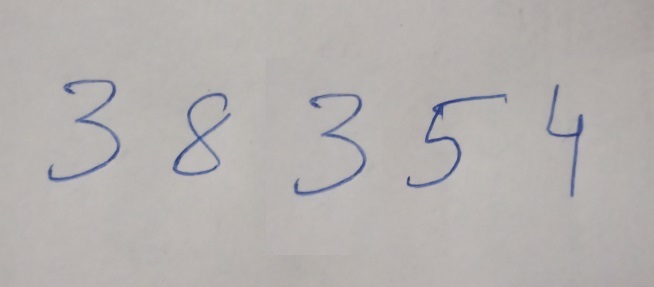 3 8 3 5 4